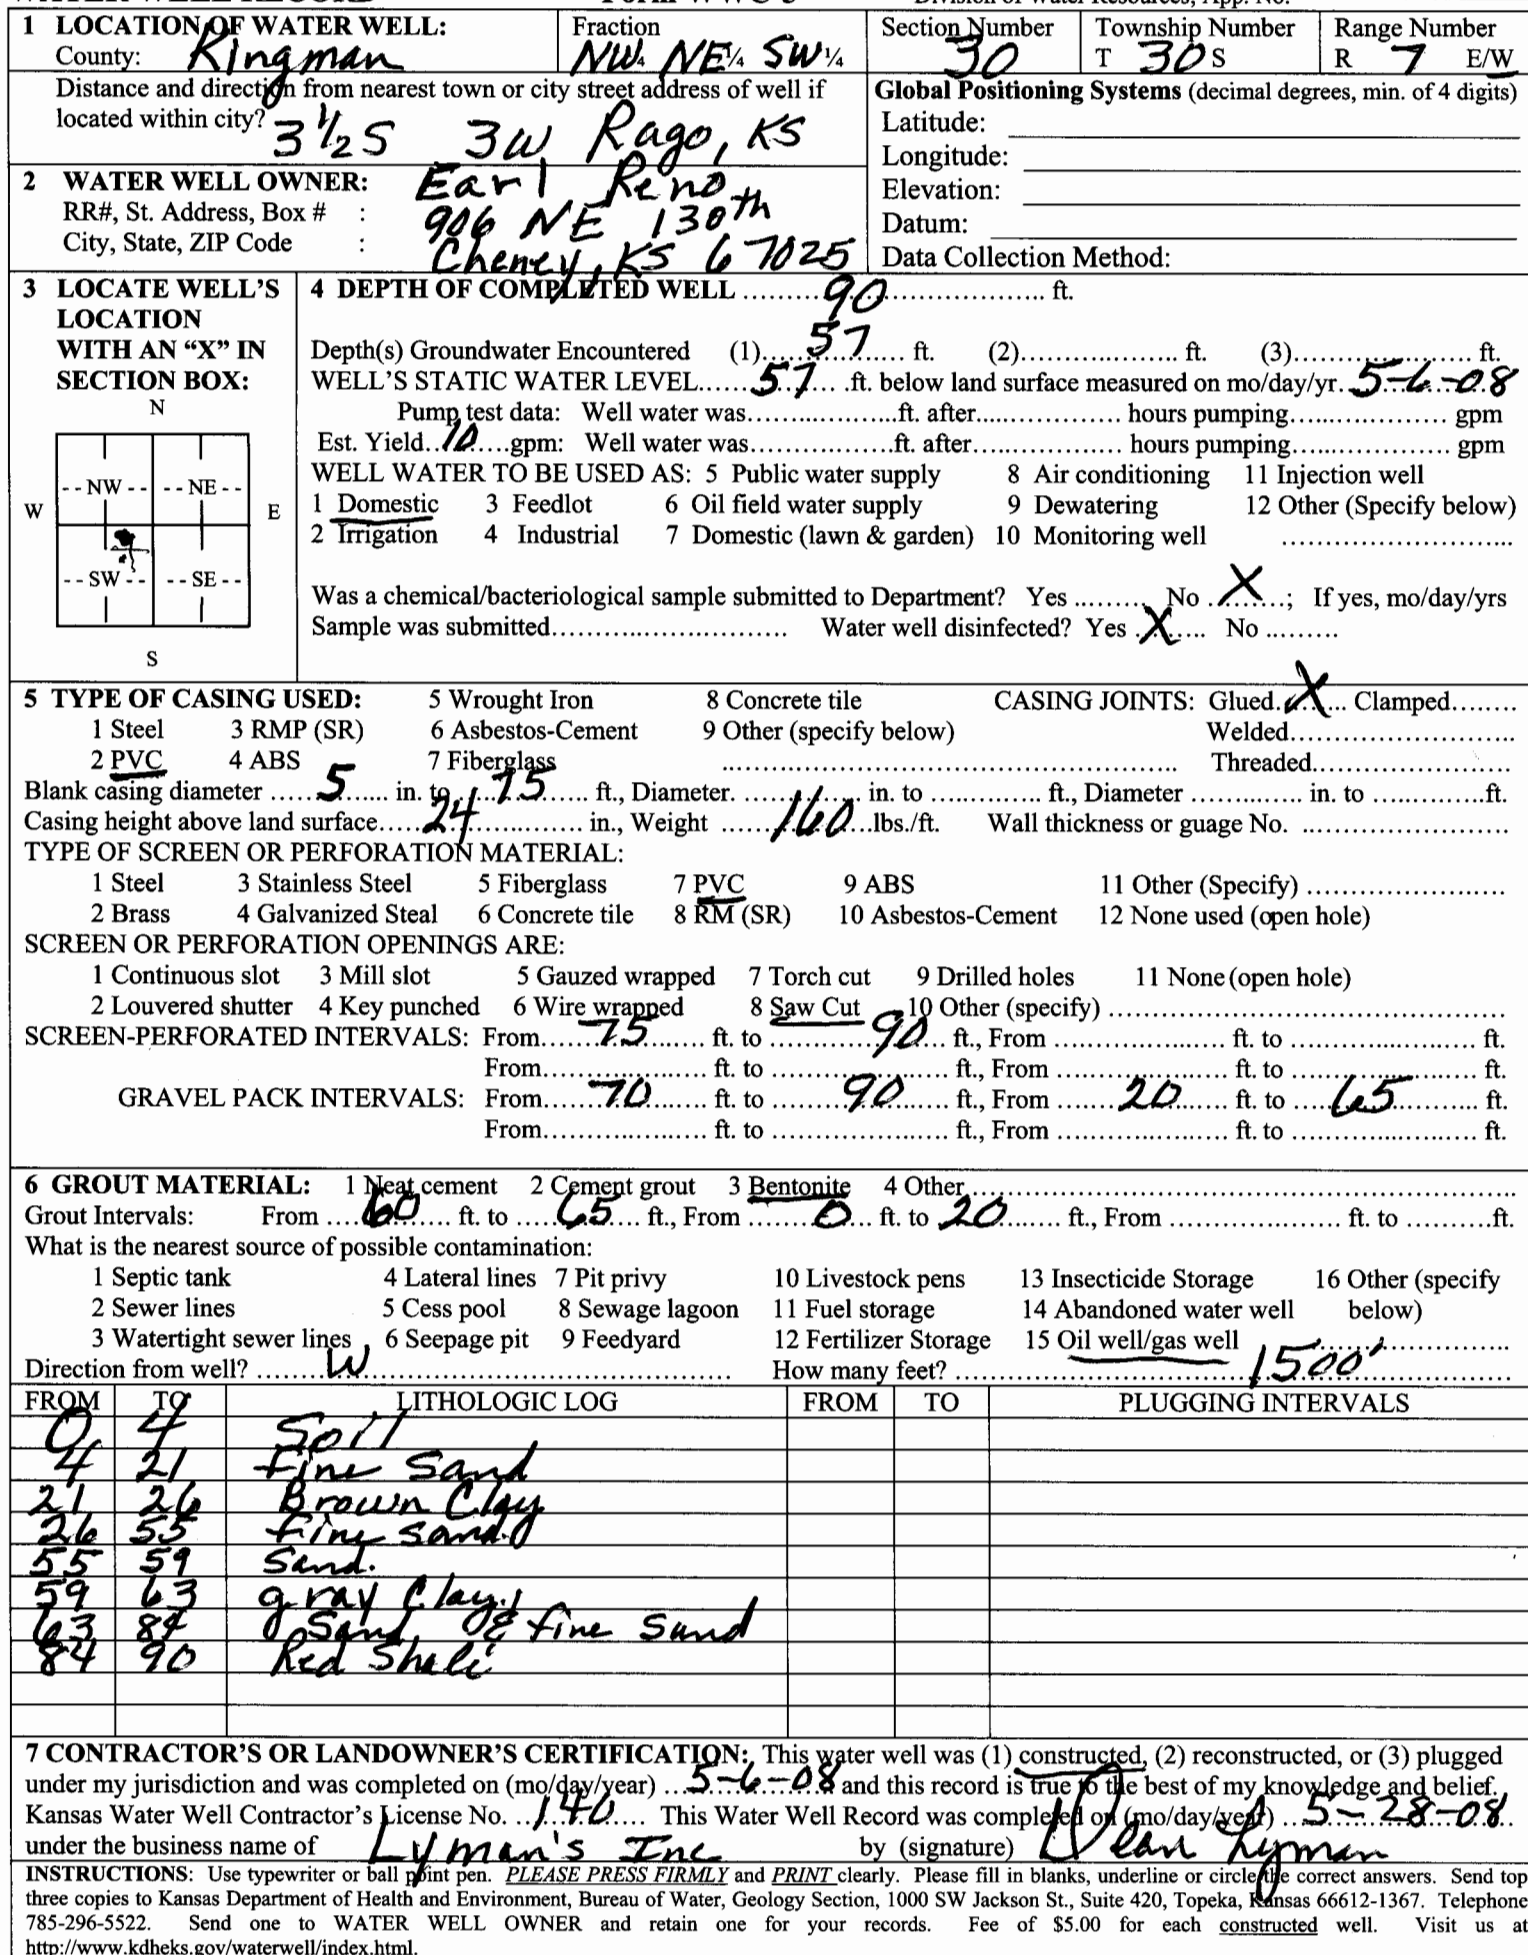 1 LOCATION OF WATER WELL: Fraction Section Number Township Number Range Number
County: Kingman NW¼ NE¼ SW¼ 30 T 30 S R 7 E/W
Distance and direction from nearest town or city street address of well if
located within city? 3 1/2 S 3W Rago, KS
Global Positioning Systems (decimal degrees, min. of 4 digits)
Latitude:
Longitude:
Elevation:
Datum:
Data Collection Method:
2 WATER WELL OWNER: Earl Reno
RR#, St. Address, Box # : 906 NE 130th
City, State, ZIP Code : Cheney, KS 67025
3 LOCATE WELL'S
LOCATION
WITH AN "X" IN
SECTION BOX:
N
--NW-- --NE--
W E
--SW-- --SE--
S
4 DEPTH OF COMPLETED WELL 90 ft.
Depth(s) Groundwater Encountered (1) 57 ft. (2) ft. (3) ft.
WELL'S STATIC WATER LEVEL 57 ft. below land surface measured on mo/day/yr. 5-6-08
Pump test data: Well water was ft. after hours pumping gpm
Est. Yield 10 gpm: Well water was ft. after hours pumping gpm
WELL WATER TO BE USED AS: 5 Public water supply 8 Air conditioning 11 Injection well
1 Domestic 3 Feedlot 6 Oil field water supply 9 Dewatering 12 Other (Specify below)
2 Irrigation 4 Industrial 7 Domestic (lawn & garden) 10 Monitoring well
Was a chemical/bacteriological sample submitted to Department? Yes No X ; If yes, mo/day/yrs
Sample was submitted Water well disinfected? Yes X No
5 TYPE OF CASING USED: 5 Wrought Iron 8 Concrete tile CASING JOINTS: Glued X Clamped
1 Steel 3 RMP (SR) 6 Asbestos-Cement 9 Other (specify below) Welded
2 PVC 4 ABS 7 Fiberglass Threaded
Blank casing diameter 5 in. to 75 ft., Diameter in. to ft., Diameter in. to ft.
Casing height above land surface 24 in., Weight 160 lbs./ft. Wall thickness or guage No.
TYPE OF SCREEN OR PERFORATION MATERIAL:
1 Steel 3 Stainless Steel 5 Fiberglass 7 PVC 9 ABS 11 Other (Specify)
2 Brass 4 Galvanized Steal 6 Concrete tile 8 RM (SR) 10 Asbestos-Cement 12 None used (open hole)
SCREEN OR PERFORATION OPENINGS ARE:
1 Continuous slot 3 Mill slot 5 Gauzed wrapped 7 Torch cut 9 Drilled holes 11 None (open hole)
2 Louvered shutter 4 Key punched 6 Wire wrapped 8 Saw Cut 10 Other (specify)
SCREEN-PERFORATED INTERVALS: From 75 ft. to 90 ft., From ft. to ft.
From ft. to ft., From ft. to ft.
GRAVEL PACK INTERVALS: From 70 ft. to 90 ft., From 20 ft. to 65 ft.
From ft. to ft., From ft. to ft.
6 GROUT MATERIAL: 1 Neat cement 2 Cement grout 3 Bentonite 4 Other
Grout Intervals: From 60 ft. to 65 ft., From 0 ft. to 20 ft., From ft. to ft.
What is the nearest source of possible contamination:
1 Septic tank 4 Lateral lines 7 Pit privy 10 Livestock pens 13 Insecticide Storage 16 Other (specify
2 Sewer lines 5 Cess pool 8 Sewage lagoon 11 Fuel storage 14 Abandoned water well below)
3 Watertight sewer lines 6 Seepage pit 9 Feedyard 12 Fertilizer Storage 15 Oil well/gas well
Direction from well? W How many feet? 1500'
FROM TO LITHOLOGIC LOG FROM TO PLUGGING INTERVALS
0 4 Soil
4 21 fine sand
21 26 Brown Clay
26 55 fine sand
55 59 Sand.
59 63 gray Clay
63 84 Sand & fine sand
84 90 Red Shale
7 CONTRACTOR'S OR LANDOWNER'S CERTIFICATION: This water well was (1) constructed, (2) reconstructed, or (3) plugged
under my jurisdiction and was completed on (mo/day/year) 5-6-08 and this record is true to the best of my knowledge and belief.
Kansas Water Well Contractor's License No. 140 This Water Well Record was completed on (mo/day/year) 5-28-08
under the business name of Lyman's Inc by (signature) Dean Lyman
INSTRUCTIONS: Use typewriter or ball point pen. PLEASE PRESS FIRMLY and PRINT clearly. Please fill in blanks, underline or circle the correct answers. Send top
three copies to Kansas Department of Health and Environment, Bureau of Water, Geology Section, 1000 SW Jackson St., Suite 420, Topeka, Kansas 66612-1367. Telephone
785-296-5522. Send one to WATER WELL OWNER and retain one for your records. Fee of $5.00 for each constructed well. Visit us at
http://www.kdheks.gov/waterwell/index.html.